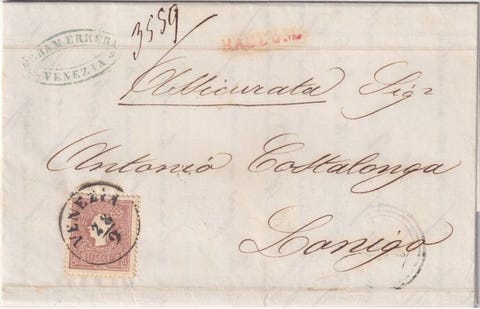 ABRAM ERRERA
VENEZIA
3559
Assicurata Sigr
Antonio Costalonga
Lonigo
VENEZIA
28
10 SOLDI